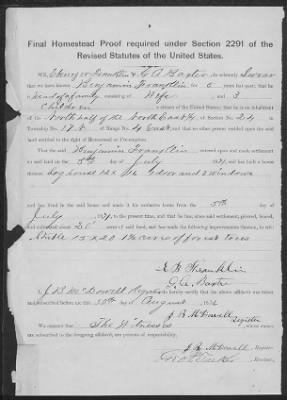 Final Homestead Proof required under Section 2291 of the
Revised Statutes of the United States.
We, Ebenezer Franklin & G. A. Baxter, do solemnly Swear
that we have known Benjamin Franklin for 5 years last past; that he
is head of a family consisting of Wife and 3
Children a citizen of the United States; that he is an inhabitant
of the North half of the North East 1/4 of Section No. 24 in
Township No. 12 S of Range No. 4 East and that no other person resided upon the said
land entitled to the right of Homestead or Pre-emption.
That the said Benjamin Franklin entered upon and made settlement
on said land on the 5th day of July 1871, and has built a house
thereon Log house 12 x 14 1 door and 2 windows
and has lived in the said house and made it his exclusive home from the 5th day of
July 1871, to the present time, and that he has, since said settlement, plowed, fenced,
and cultivated about 20 acres of said land, and has made the following improvements thereon, to wit:
Stable 15 x 20 1 1/2 acres of forest trees
E. B. Franklin
G. A. Baxter
I, J. B. McDowell Register do hereby certify that the above affidavit was taken
and subscribed before me this 30th day of August 1876
J. B. McDowell
Register
We certify that The Witnesses whose names
are subscribed to the foregoing affidavit, are persons of respectability.
J. B. McDowell, Register.
Receiver.